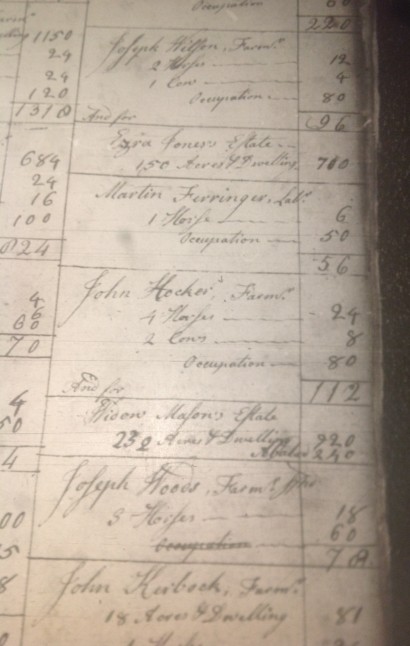 1150
24
24
120
1318
684
24
16
100
824
4
6
60
70
4
50
4
00
5
8
Occupation 60
220
Joseph Wilson, Farmr
2 Horses 12
1 Cow 4
Occupation 80
And for 96
Ezra Jones's Estate
150 Acres & Dwelling 700
Martin Ferringer, Labr
1 Horse 6
Occupation 50
56
John Hocker, Farmr
4 Horses 24
2 Cows 8
Occupation 80
And for 112
Widow Mason's Estate
232 Acres & Dwelling 920
Abated 240
Joseph Woods, Farmr
3 Horses 18
Occupation 60
78
John Kerbock, Farmr
18 Acres & Dwelling 81